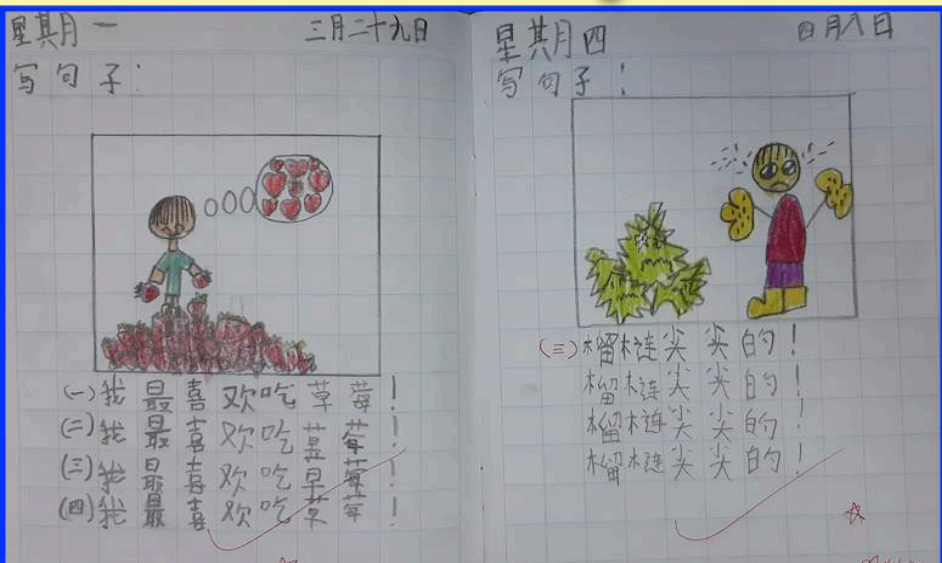 星期一 三月二十九日
写句子:
(一)我最喜欢吃草莓!
(二)我最喜欢吃草莓!
(三)我最喜欢吃草莓!
(四)我最喜欢吃草莓!
星期四 四月八日
写句子!
(三)榴梿尖尖的!
榴梿尖尖的!
榴梿尖尖的!
榴梿尖尖的!